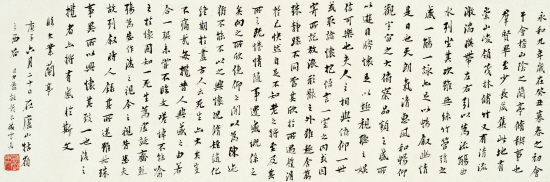 永和九年歲在癸丑暮春之初會
于會稽山陰之蘭亭脩稧事也
群賢畢至少長咸集此地有
崇山峻領茂林脩竹又有清流
激湍暎帶左右引以為流觴曲
水列坐其次雖無絲竹管弦之
盛一觴一詠亦足以暢敘幽情
是日也天朗氣清惠風和暢仰
觀宇宙之大俯察品類之盛所
以遊目騁懷足以極視聽之娛
信可樂也夫人之相與俯仰一世
或取諸懷抱悟言一室之內或因
寄所託放浪形骸之外雖趣舍萬
殊靜躁不同當其欣於所遇暫得於己
之既惓情隨事遷感慨係之
矣向之所欣俛仰之間以為陳迹
猶不能不以之興懷況脩短隨化
終期於盡古人云死生亦大矣豈
不痛哉每攬昔人興感之由若
合一契未嘗不臨文嗟悼不能喻
之於懷固知一死生為虛誕齊彭
殤為妄作後之視今亦由今之視昔悲夫
故列敘時人錄其所述雖世殊
事異所以興懷其致一也後之
攬者亦將有感於斯文
蘭亭
六月二十日在廬山牯嶺
之西谷